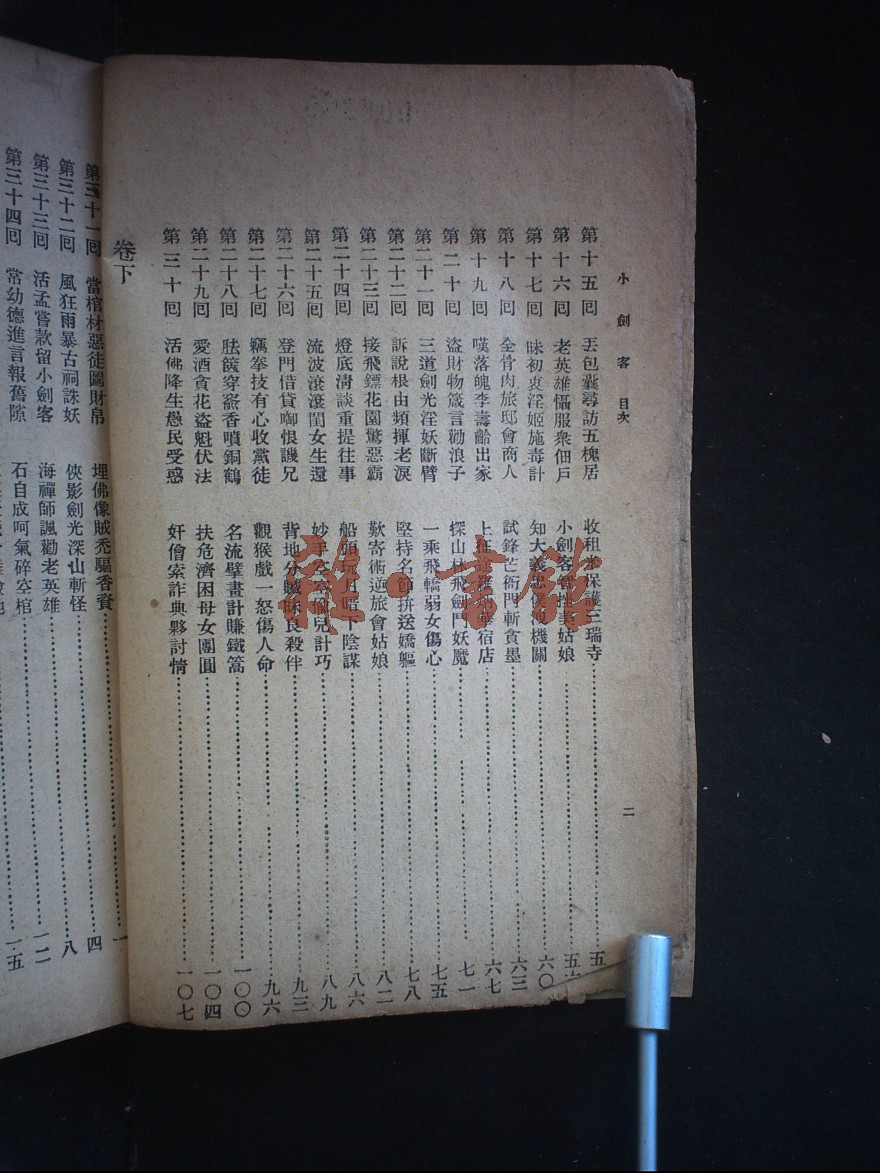 小劍客 目次 二
第十五回 丟包囊尋訪五槐居 收租 保護三瑞寺 五
第十六回 老英雄懾服衆佃戶 小劍客 姑娘 五
第十七回 昧初衷淫姬施毒計 知大義忠僕洩機關 六〇
第十八回 全骨肉旅邸會商人 試鋒芒衙門斬貪墨 六三
第十九回 嘆落魄李壽齡出家 上征途 宿店 六七
第二十回 盜財物箴言勸浪子 探山林飛劍鬥妖魔 七一
第二十一回 三道劍光淫妖斷臂 一乘飛轎弱女傷心 七五
第二十二回 訴說根由頻揮老淚 堅持名節拚送嬌軀 七八
第二十三回 接飛鏢花園驚惡霸 歎寄術逆旅會姑娘 八二
第二十四回 燈底淸談重提往事 船頭玩月暗下陰謀 八六
第二十五回 流波滾滾閨女生還 妙手空空偷兒計巧 八九
第二十六回 登門借貸啣恨譏兄 背地分贓昧良殺伴 九三
第二十七回 竊拳技有心收黨徒 觀猴戲一怒傷人命 九六
第二十八回 胠篋穿窬香噴銅鶴 名流擘畫計賺鐵篙 一〇〇
第二十九回 愛酒貪花盜魁伏法 扶危濟困母女團圓 一〇四
第三十回 活佛降生愚民受惑 奸僧索詐典夥討情 一〇七
卷下
第三十一回 當棺材惡徒圖財帛 埋佛像賊禿騙香賚 一
第三十二回 風狂雨暴古祠誅妖 俠影劍光深山斬怪 四
第三十三回 活孟嘗款留小劍客 海禪師諷勸老英雄 八
第三十四回 常幼德進言報舊隙 石自成呵氣碎空棺 一二
一五
雜·書館